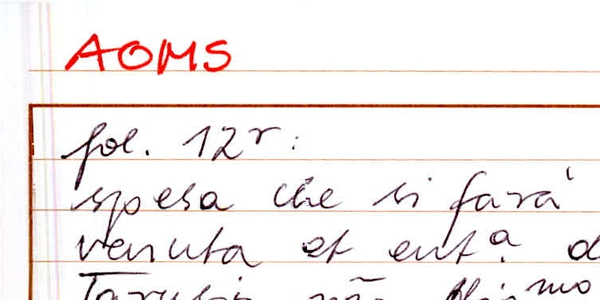 AOMS
fol. 12r:
spesa che si farà
venuta et ent.a d